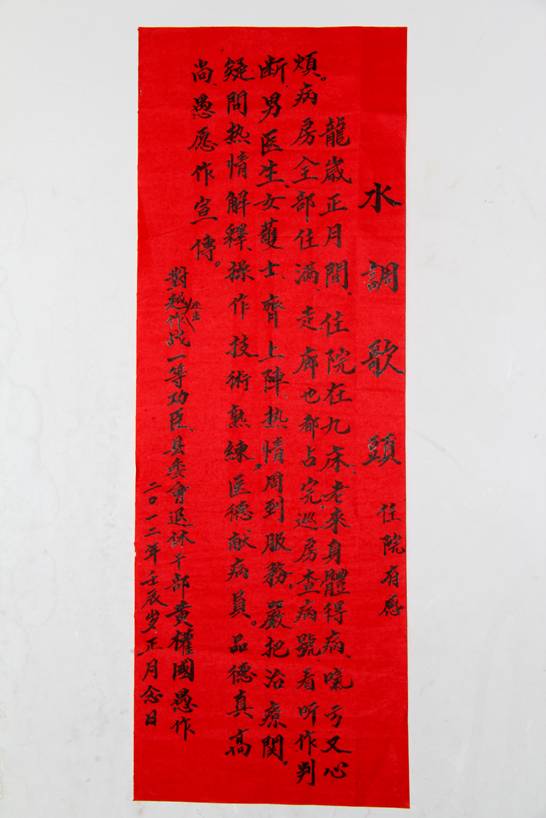 水調歌頭 住院有感
龍歲正月間、住院在九床、老來身體得病、氣亏又心
煩。病房全部住滿、走廊也都占完、巡房查病號、看听作判
断、男医生、女護士、齊上陣、热情周到服務。嚴把治療関。
疑問热情解釋、操作技術熟練、医德献病員。品德真高
尚愚愿作宣傳。
對越作战一等功臣、县委會退休干部黄權國愚作
二〇一二年壬辰岁正月念日